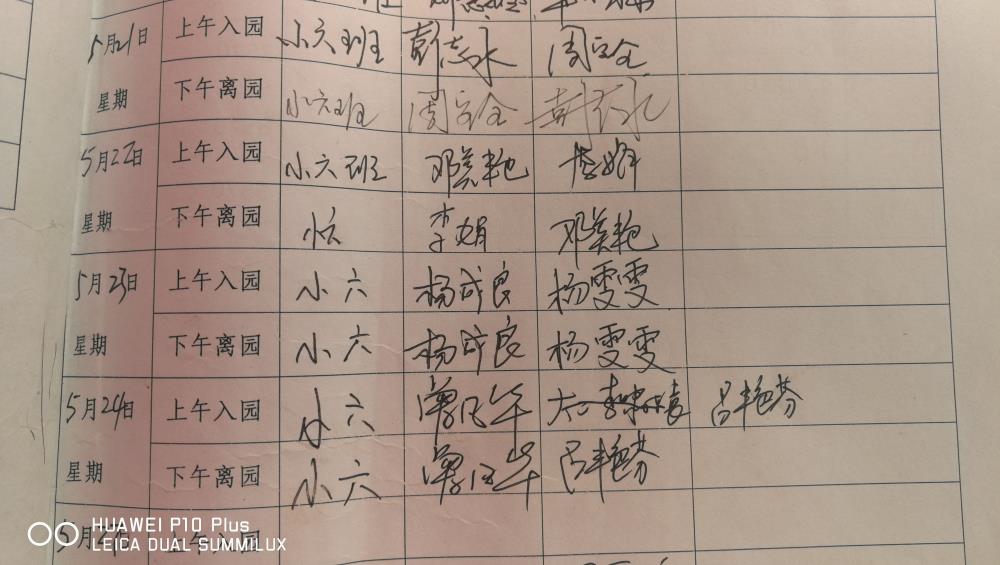 5月21日 上午入园 小六班 彭志永 周立全
星期 下午离园 小六班 周立全 彭志永
5月22日 上午入园 小六班 邓美艳 李娟
星期 下午离园 小六 李娟 邓美艳
5月23日 上午入园 小六 杨成良 杨雯雯
星期 下午离园 小六 杨成良 杨雯雯
5月24日 上午入园 小六 吕艳芬
星期 下午离园 小六 吕艳芬
上午入园
HUAWEI P10 Plus
LEICA DUAL SUMMILUX